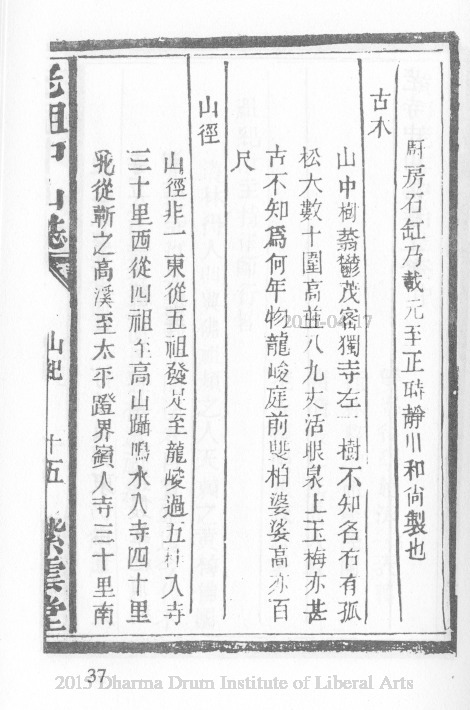 厨房石缸乃載元至正時靜川和尚製也
古木
山中樹蓊鬱茂密獨寺左一樹不知名右有孤
松大數十圍高並八九丈活眼泉上玉梅亦甚
古不知爲何年物龍峻庭前雙柏婆娑高亦百
尺
山徑
山徑非一東從五祖發足至龍峻過五 入寺
三十里西從四祖至高山躡鳴水入寺四十里
北從蘄之高溪至太平蹬界嶺入寺三十里南
老祖中山志
山紀
十五
紫雲堂
37
2015 Dharma Drum Institute of Liberal Arts